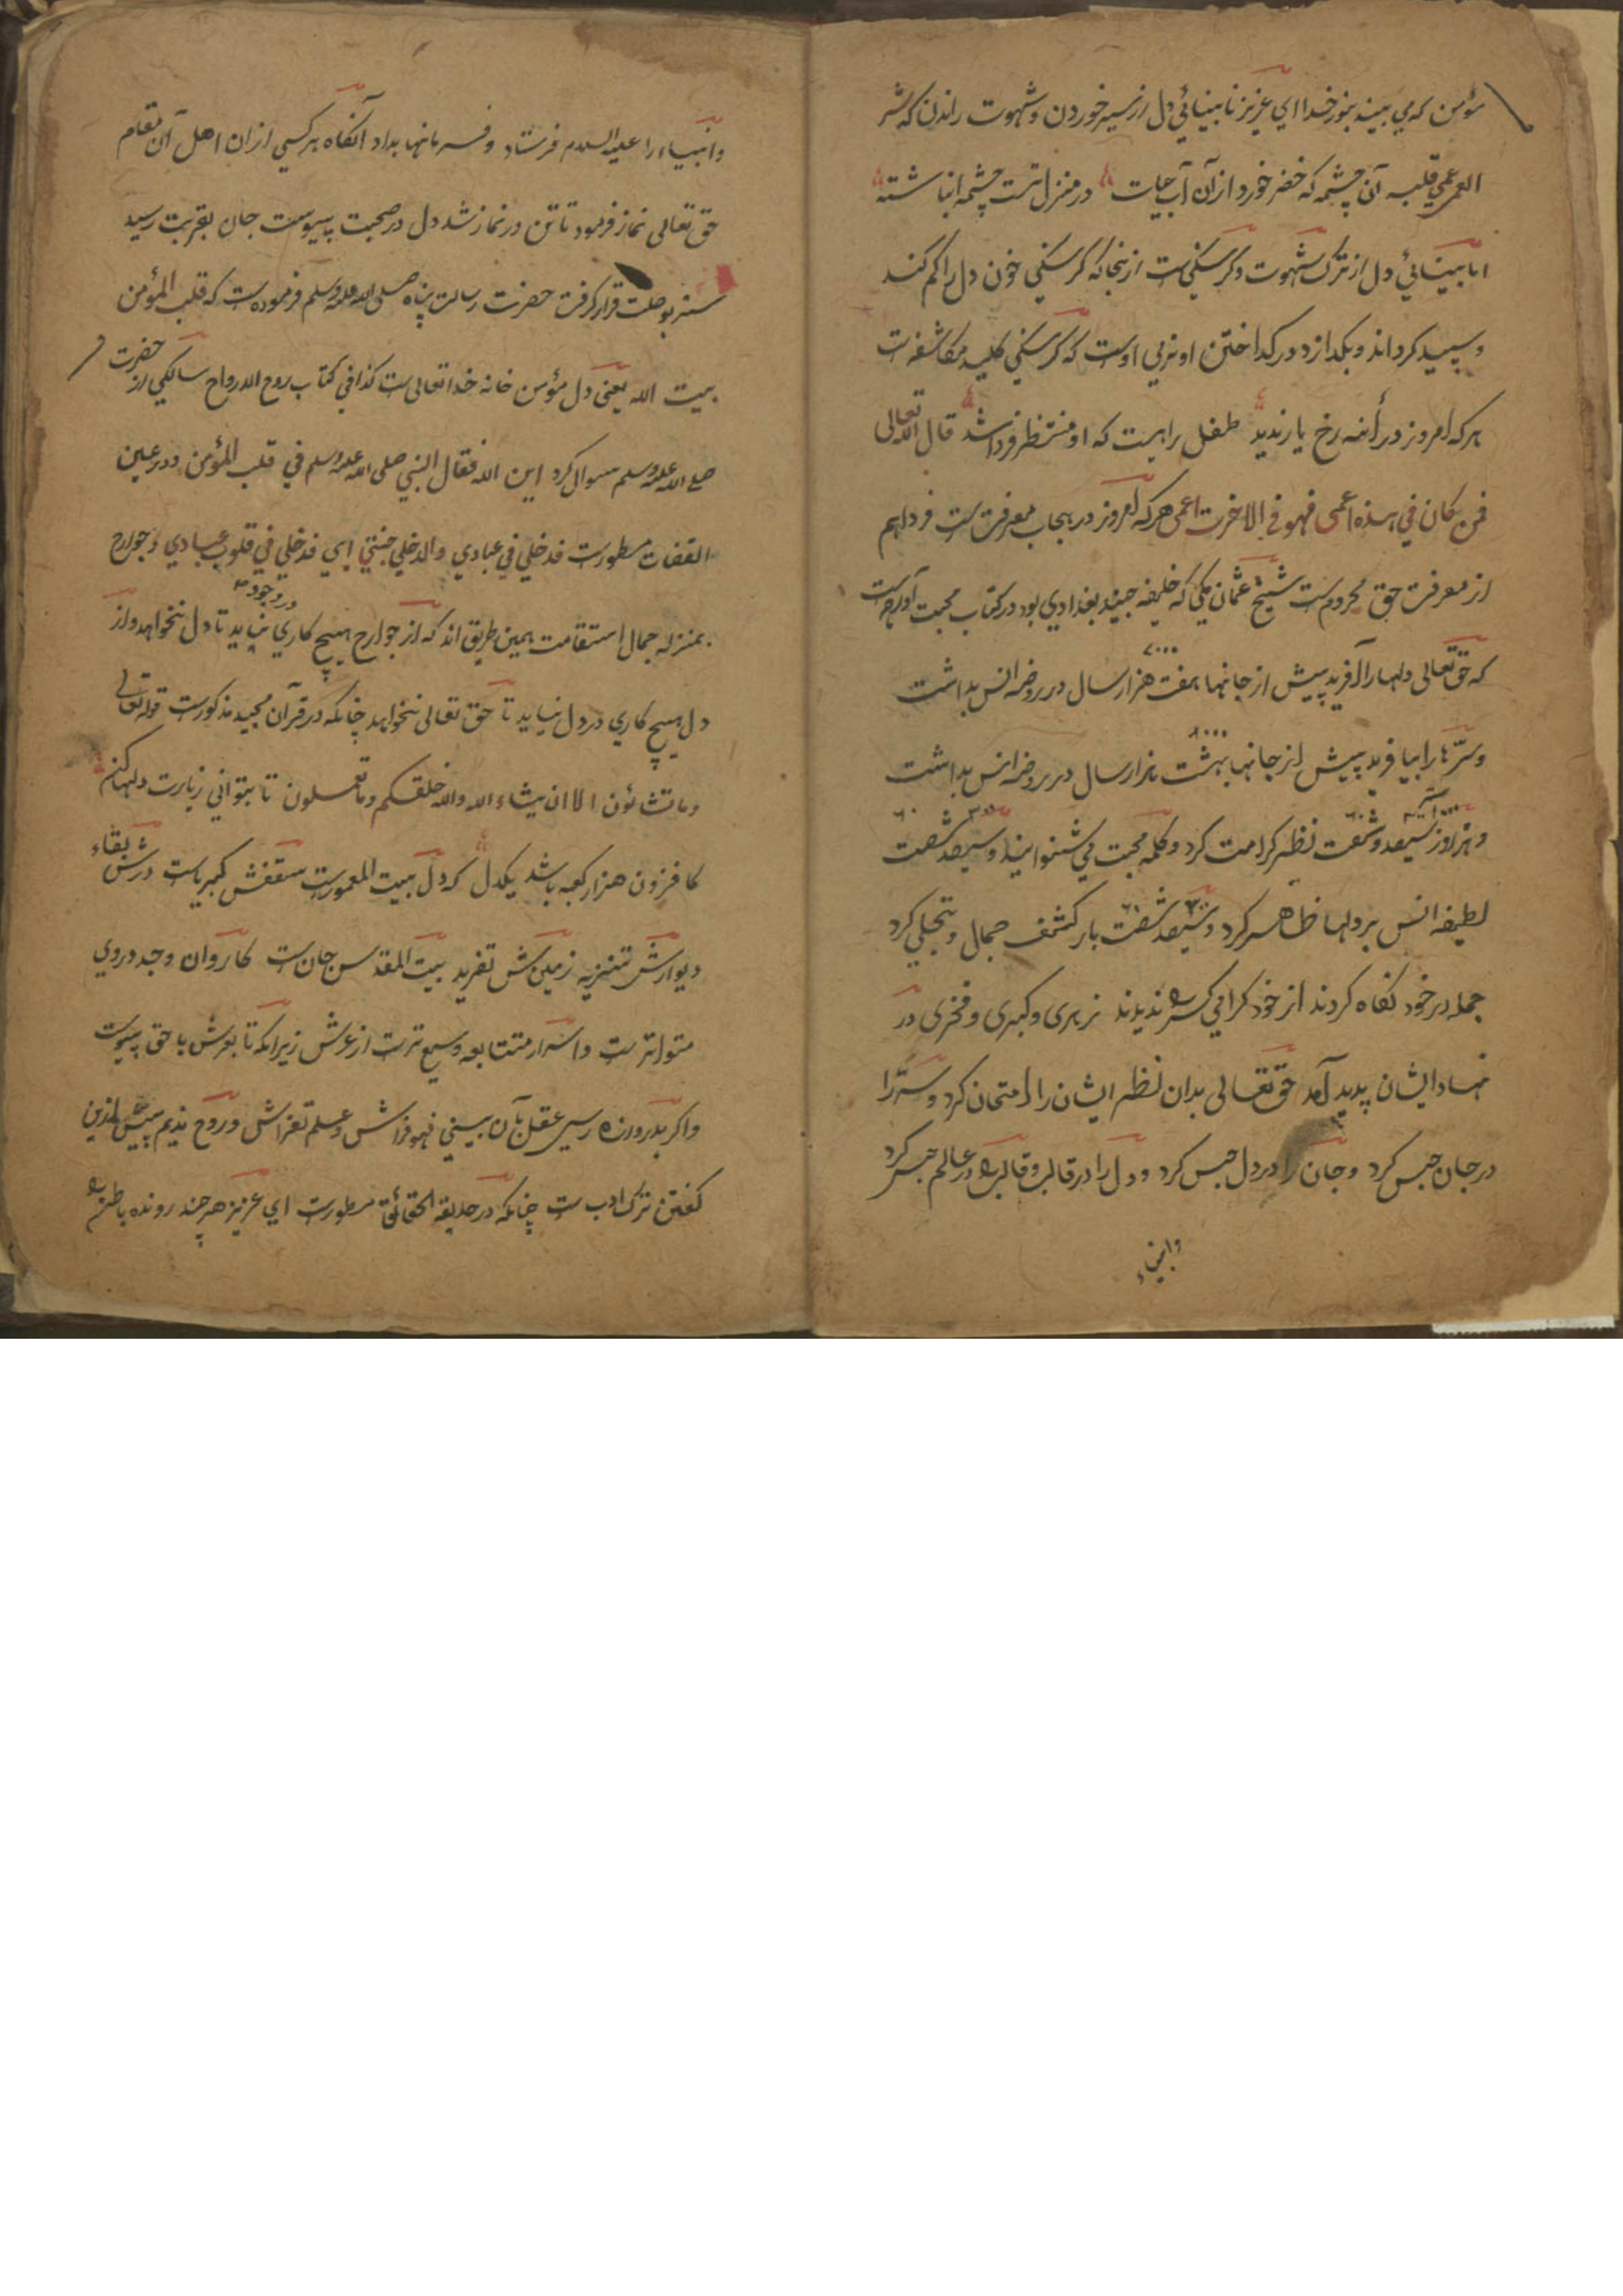 مؤمن که می بیند بنور خدا ای عزیز نابینائی دل از سیر خوردن و شهوت راندن که شر
العمی عمی قلبه آن چشمه که خضر خورد از آن آب حیات در منزل تست چشمه انباشته
اما بینائی دل از ترک شهوت و گرسنگی ست از بنجا که گرسنگی خون دل را کم کند
و سپید گرداند و بگدازد و در گداختن او نزبی اوست که گرسنگی کلید مکاشفه است
هر که امروز در أئنه رخ یار ندید طفل راهست که او منتظر فردا شد قال الله تعالی
فمن کان فی هذه اعمی فهو فی الاخرت اعمی هر که امروز در حجاب معرفت ست فردا هم
از معرفت حق محروم ست شیخ عثمان مکی که خلیفه جنید بغدادی بود در کتاب محبت آورده است
که حق تعالی دلها را آفرید پیش از جانها بهفت هزار سال در روضه انس بداشت ۷۰۰۰
و سرّها را بیافرید پیش از جانها بهشت هزار سال در روضه انس بداشت ۸۰۰۰
و هر روز سیصد و شصت نظر کرامت کرد و کلمه محبت می شنوانید و سیصد شصت
لطیفه انس بر دلها ظاهر کرد و سیصد شصت بار کشف جمال و تجلی کرد
جمله در خود نگاه کردند از خود گرامی کس ندیدند زهری و کبری و فخری در
نهاد ایشان پدید آمد حق تعالی بدان نظر ایشان را امتحان کرد و سرّ را
در جان حبس کرد و جان را در دل حبس کرد و دل را در قالب و قالب در عالم حبس کرد
وانبیاء
وانبیاء را علیه السلام فرستاد و فرمانها بداد آنگاه هر کسی از ان اهل آن مقام
حق تعالی نماز فرمود تا تن در نماز شد دل در صحبت پیوست جان بقربت رسید
سر بوصلت قرار گرفت حضرت رسالت پناه صلی الله علیه وسلم فرموده است که قلب المؤمن
بیت الله یعنی دل مؤمن خانه خدا تعالی ست کذا فی کتاب روح الارواح سالکی از حضرت
صلی الله علیه وسلم سوال کرد این الله فقال النبی صلی الله علیه وسلم فی قلب المؤمن و در عین
القضات مسطورست فدخلی فی عبادی والدخلی جنتی ای فدخلی فی قلوب عبادی و جوارح
بمنزله جمال استقامت همین طریق اند که از جوارح هیچ کاری در وجود نیاید تا دل نخواهد و از
دل هیچ کاری در دل نیاید تا حق تعالی نخواهد چنانکه در قرآن مجید مذکورست قوله تعالی
وما تشائون الا ان یشاء الله والله خلقکم وما تعملون تا بتوانی زیارت دلها کن
کافزون هزار کعبه باشد یکدل که دل بیت المعمورست سقفش کبریاست درش بقاء
دیوارش تنزیه زمینش تفرید بیت المقدس جان ست کاروان وجد در وی
متواترست و اسرار متتابعه وسیع ترست از عرش زیرا که تا بعرش با حق پیوست
و اگر بدروازه رسی عقل بآن بینی فهو فراش و علم تفراش و روح ندیم بیش ازین
گفتن ترک ادب ست چنانکه در حدیقة الحقائق مسطورست ای عزیز هر چند رونده باطن